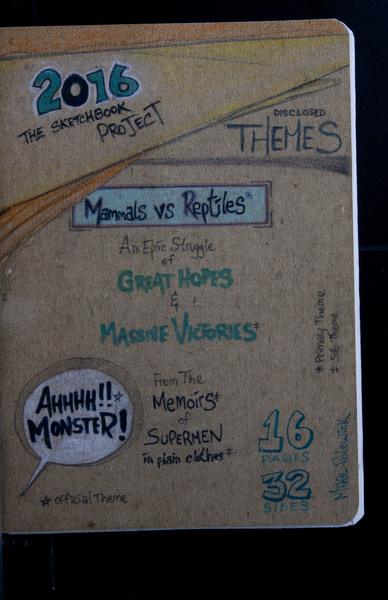 2016
THE SKETCHBOOK
PROJECT
DISCLOSED
THEMES
Mammals vs Reptiles*
An Epic Struggle
of
GREAT HOPES
&
MASSIVE VICTORIES‡
* Primary Theme
‡ Sub Theme
AHHHH!!☆
MONSTER!
From The
Memoirs‡
of
SUPERMEN
in plain clothes‡
16
PAGES
32
SIDES
☆ Official Theme